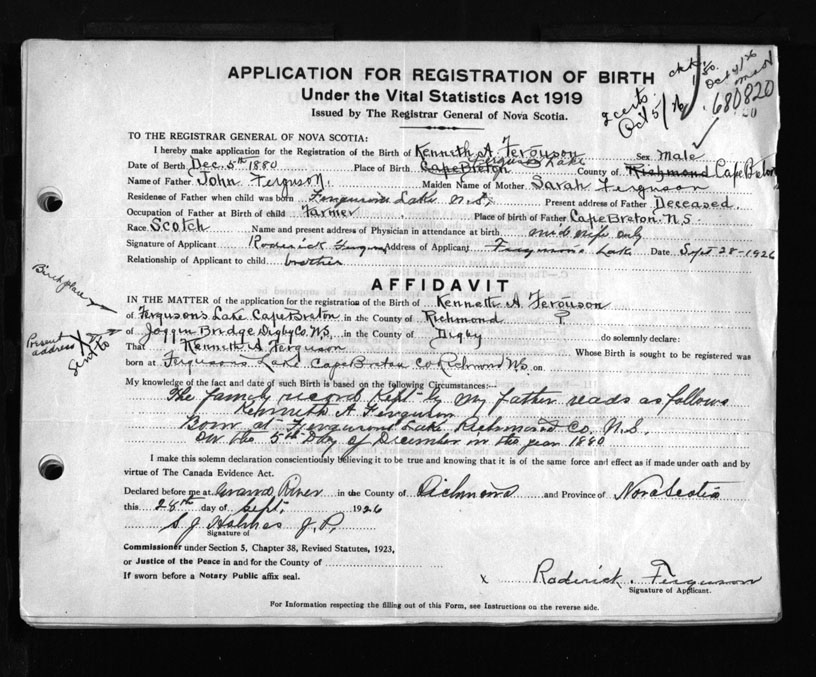 APPLICATION FOR REGISTRATION OF BIRTH
Under the Vital Statistics Act 1919
Issued by The Registrar General of Nova Scotia.
2 certs. Oct 5/26
Oct 4/26
680820
TO THE REGISTRAR GENERAL OF NOVA SCOTIA:
I hereby make application for the Registration of the Birth of Kenneth A. Ferguson Sex Male
Date of Birth Dec. 5th 1880 Place of Birth Cape Breton Fergusons Lake County of Richmond Cape Breton
Name of Father John Ferguson. Maiden Name of Mother Sarah Ferguson
Residense of Father when child was born Fergusons Lake N.S. Present address of Father Deceased
Occupation of Father at Birth of child Farmer Place of birth of Father Cape Breton. N.S.
Race Scotch Name and present address of Physician in attendance at birth midwife only
Signature of Applicant Roderick Ferguson Address of Applicant Ferguson's Lake Date Sept 28-1926
Relationship of Applicant to child brother
AFFIDAVIT
Birthplace
IN THE MATTER of the application for the registration of the Birth of Kenneth A. Ferguson
of Fergusons Lake Cape Breton in the County of Richmond ?
Present address
Send to
of Joggin Bridge Digby Co. N.S., in the County of Digby do solemnly declare:
That Kenneth A Ferguson Whose Birth is sought to be registered was
born at Fergusons Lake Cape Breton Co Richmond N.S. on
My knowledge of the fact and date of such Birth is based on the following Circumstances:—
The family record kept by my father reads as follows
Kenneth A Ferguson
Born at Fergusons Lake Richmond Co. N.S.
on the 5th day of December in the year 1880
I make this solemn declaration conscientiously believing it to be true and knowing that it is of the same force and effect as if made under oath and by
virtue of The Canada Evidence Act.
Declared before me at Grand River in the County of Richmond and Province of Nova Scotia
this 28th day of Sept. 1926
S. J. Holmes J. P.
Signature of
Commissioner under Section 5, Chapter 38, Revised Statutes, 1923,
or Justice of the Peace in and for the County of
If sworn before a Notary Public affix seal.
x Roderick Ferguson
Signature of Applicant.
For Information respecting the filling out of this Form, see Instructions on the reverse side.